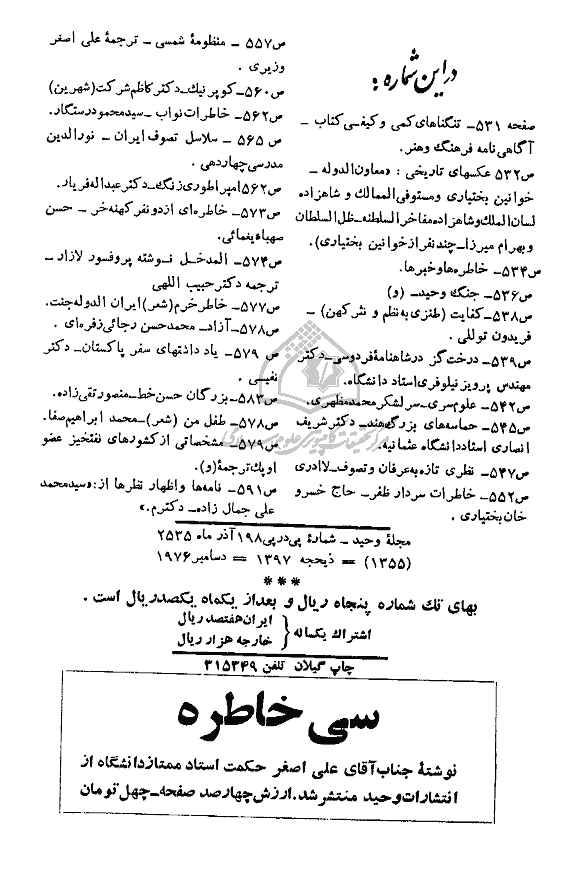 در این شماره :
صفحه ۵۳۱ـ تنگناهای کمی و کیفی کتاب ـ
آگاهی نامه فرهنگ وهنر.
ص۵۳۲ عکسهای تاریخی : «معاون‌الدوله ـ
خوانین بختیاری ومستوفی الممالک و شاهزاده
لسان‌الملک و شاهزاده مفاخر السلطنه ـ ظل السلطان
و بهرام میرزا ـ چند نفر از خوانین بختیاری).
ص۵۳۴ـ خاطره ها و خبرها.
ص۵۳۶ـ جنگ وحید ـ (و)
ص۵۳۸ـ کفایت (طنزی به نظم و نثر کهن) ـ
فریدون توللی .
ص۵۳۹ـ درخت گز در شاهنامهٔ فردوسی ـ دکتر
مهندس پرویز نیلوفری استاد دانشگاه.
ص۵۴۲ـ علوم سری ـ سرلشکر محمد مظهری.
ص۵۴۵ـ حماسه‌های بزرگ هند ـ دکتر شریف
انصاری استاد دانشگاه عثمانیه.
ص۵۴۷ـ نظری تازه به عرفان و تصوف ـ لاادری
ص۵۵۲ـ خاطرات سردار ظفر ـ حاج خسرو
خان بختیاری .
ص۵۵۷ ـ منظومهٔ شمسی ـ ترجمهٔ علی اصغر
وزیری .
ص۵۶۰ـ کوپرنیک ـ دکتر کاظم شرکت (شهرین)
ص۵۶۲ـ خاطرات نواب ـ سید محمود رستگار.
ص ۵۶۵ ـ سلاسل تصوف ایران ـ نورالدین
مدرسی چهاردهی .
ص۵۶۲ امپراطوری زنگ ـ دکتر عبداله فریار.
ص۵۷۳ـ خاطره‌ای از دو نفر کهنه خر ـ حسن
صهباء یغمائی.
ص۵۷۴ـ المدخل نوشته پروفسور لازار ـ
ترجمه دکتر حبیب اللهی
ص۵۷۷ـ خاطر خرم (شعر) ایران الدوله جنت.
ص۵۷۸ـ آزاد ـ محمد حسن رجائی زفره‌ای .
ص ۵۷۹ـ یاد داشتهای سفر پاکستان ـ دکتر
نفیسی .
ص۵۸۳ـ بزرگان حسن خط ـ منصور تقی زاده.
ص۵۷۸ـ طفل من (شعر) ـ محمد ابراهیم صفا.
ص۵۷۹ـ مشخصاتی از کشورهای نفتخیز عضو
اوپک ترجمهٔ (و).
ص۵۹۱ـ نامه‌ها واظهار نظرها از: «سید محمد
علی جمال زاده ـ دکتر م.»
مجلهٔ وحید ـ شمارهٔ پی در پی ۱۹۸ آذر ماه ۲۵۳۵
(۱۳۵۵) = ذیحجه ۱۳۹۷ = دسامبر ۱۹۷۶
***
بهای تک شماره پنجاه ریال و بعد از یکماه یکصد ریال است .
اشتراک یکساله { ایران هفتصد ریال
خارجه هزار ریال
چاپ گیلان تلفن ۳۱۵۳۴۹
سی خاطره
نوشتهٔ جناب آقای علی اصغر حکمت استاد ممتاز دانشگاه از
انتشارات وحید منتشر شد. ارزش چهار صد صفحه ـ چهل تومان